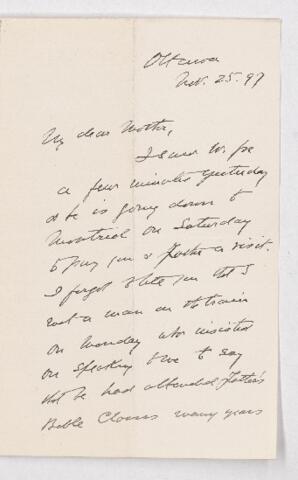 Ottawa
Nov. 25. 97
My dear Mother,
I saw
a few minutes yesterday
& he is going down to
Montreal on Saturday
to pay you & Father a visit.
I forgot to tell you that I
met a man on the train
on Monday who insisted
on speaking to me to say
that he had attended Father's
Bible Classes many years